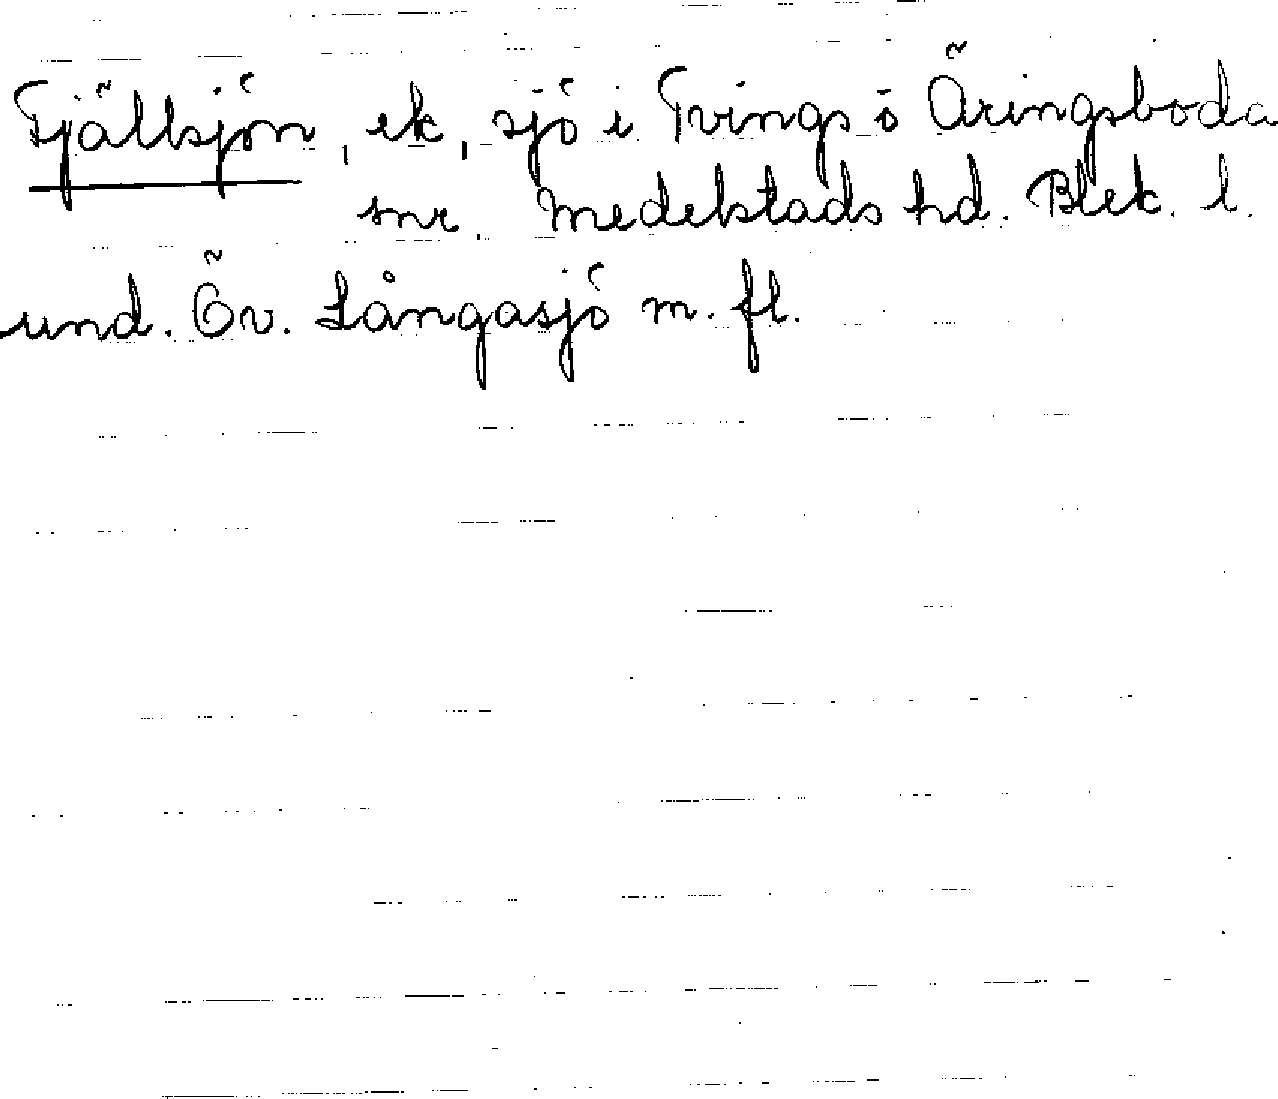 Tjällsjön, ek, sjö i Tvings ö Äringsboda
snr. Medelstads hd. Blek. l.
und. Öv. Långasjö m. fl.